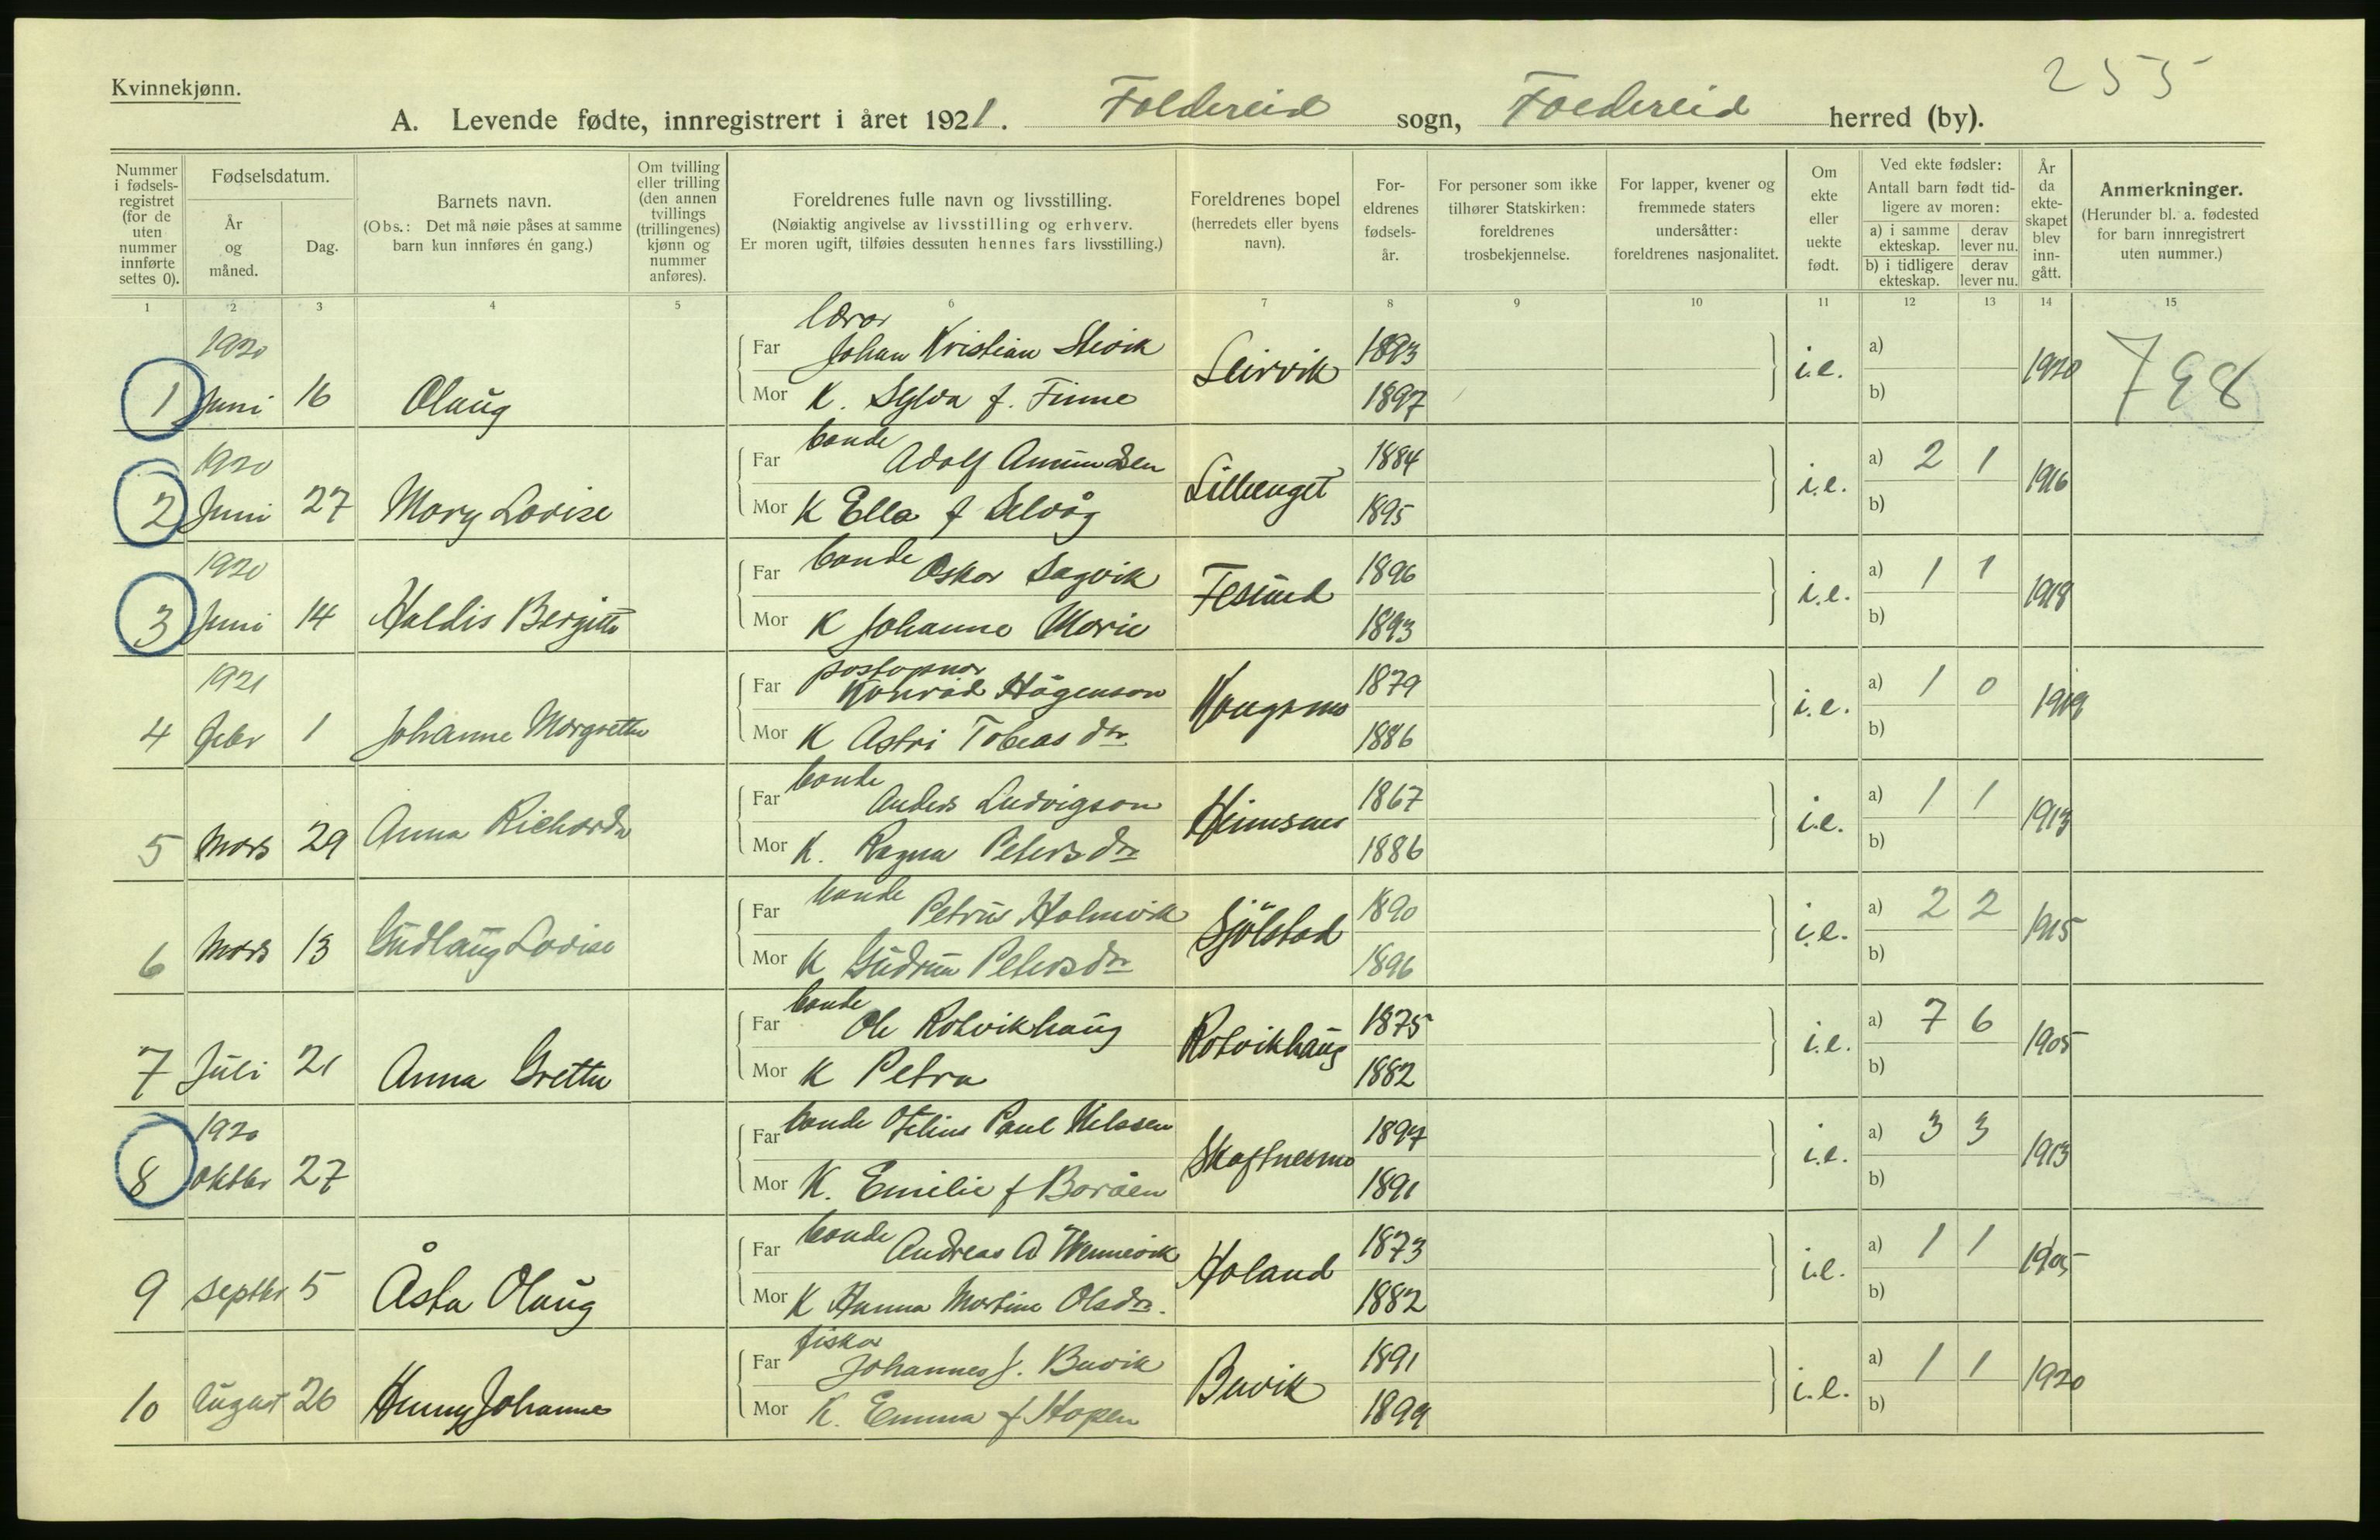 255
Kvinnekjønn.
A. Levende fødte, innregistrert i året 1921. Foldereid sogn, Foldereid herred (by).
Nummer i fødsels-registret (for de uten nummer innførte settes 0).
Fødselsdatum.
År og måned.
Dag.
Barnets navn.
(Obs.: Det må nøie påses at samme barn kun innføres én gang.)
Om tvilling eller trilling (den annen tvillings (trillingenes) kjønn og nummer anføres).
Foreldrenes fulle navn og livsstilling.
(Nøiaktig angivelse av livsstilling og erhverv.
Er moren ugift, tilføies dessuten hennes fars livsstilling.)
Foreldrenes bopel
(herredets eller byens navn).
For-eldrenes fødsels-år.
For personer som ikke tilhører Statskirken: foreldrenes trosbekjennelse.
For lapper, kvener og fremmede staters undersåtter: foreldrenes nasjonalitet.
Om ekte eller uekte født.
Ved ekte fødsler:
Antall barn født tid-ligere av moren:
a) i samme ekteskap.
derav lever nu.
b) i tidligere ekteskap.
derav lever nu.
År da ekte-skapet blev inn-gått.
Anmerkninger.
(Herunder bl. a. fødested for barn innregistrert uten nummer.)
1 2 3 4 5 6 7 8 9 10 11 12 13 14 15
1920
1 Juni 16 Olaug
lærar
Far Johan Kristian
Mor K. Sylva f. Finne
Leirvik 1893 1897 i.e. a) b) 1920 798
1920
2 Juni 27 Mary Lovise
bonde
Far Adolf Amundsen
Mor K Ella f Selvåg
Lillenget 1884 1895 i.e. a) 2 1 b) 1916
1920
3 Juni 14 Haldis Bergitte
bonde
Far Oskar Sagvik
Mor K Johanne Marie
1896 1893 i.e. a) 1 1 b) 1918
1921
4 Febr 1 Johanne Margrethe
postopnar
Far Konrad Hågenson
Mor K Astri Tobias dtr
Kongsmo 1879 1886 i.e. a) 1 0 b) 1919
5 Mars 29 Anna
bonde
Far Anders Ludvigson
Mor K. Ragna Petersdtr
1867 1886 i.e. a) 1 1 b) 1913
6 Mars 13 Gudlaug Lovise
bonde
Far Petrus Holmvik
Mor K Gudrun Petersdtr
Sjølstad 1890 1896 i.e. a) 2 2 b) 1915
7 Juli 21 Anna Grethe
bonde
Far Ole Rotvikhaug
Mor K Petra
Rotvikhaug 1875 1882 i.e. a) 7 6 b) 1905
1920
8 Oktbr 27
Far bonde Otelius Paul Nelssen
Mor K. Emilie f Boråen
Skaftnesmo 1897 1891 i.e. a) 3 3 b) 1913
9 Septbr 5 Åsta Olaug
bonde
Far Andreas A Wennevik
Mor K Hanna Martine Olsdtr.
Høland 1873 1882 i.e. a) 1 1 b) 1905
10 August 26 Henny Johanne
fiskar
Far Johannes J. Buvik
Mor K. Emma f Hopen
Buvik 1891 1899 i.e. a) 1 1 b) 1920